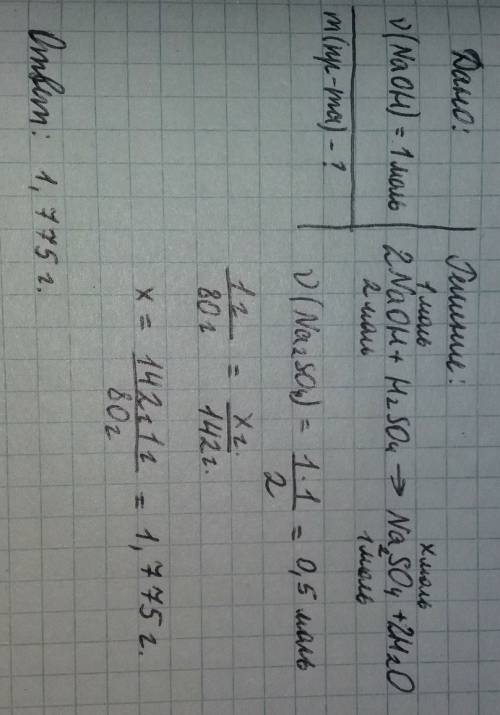 Дано:
ν(NaOH) = 1 моль
m(пр-та) - ?
Решение:
1 моль x моль
2NaOH + H₂SO₄ → Na₂SO₄ + 2H₂O
2 моль 1 моль
ν(Na₂SO₄) = 1·1 / 2 = 0,5 моль
1г / 80г = xг. / 142г.
x = 142г·1г / 80г = 1,775г.
Ответ: 1,775г.